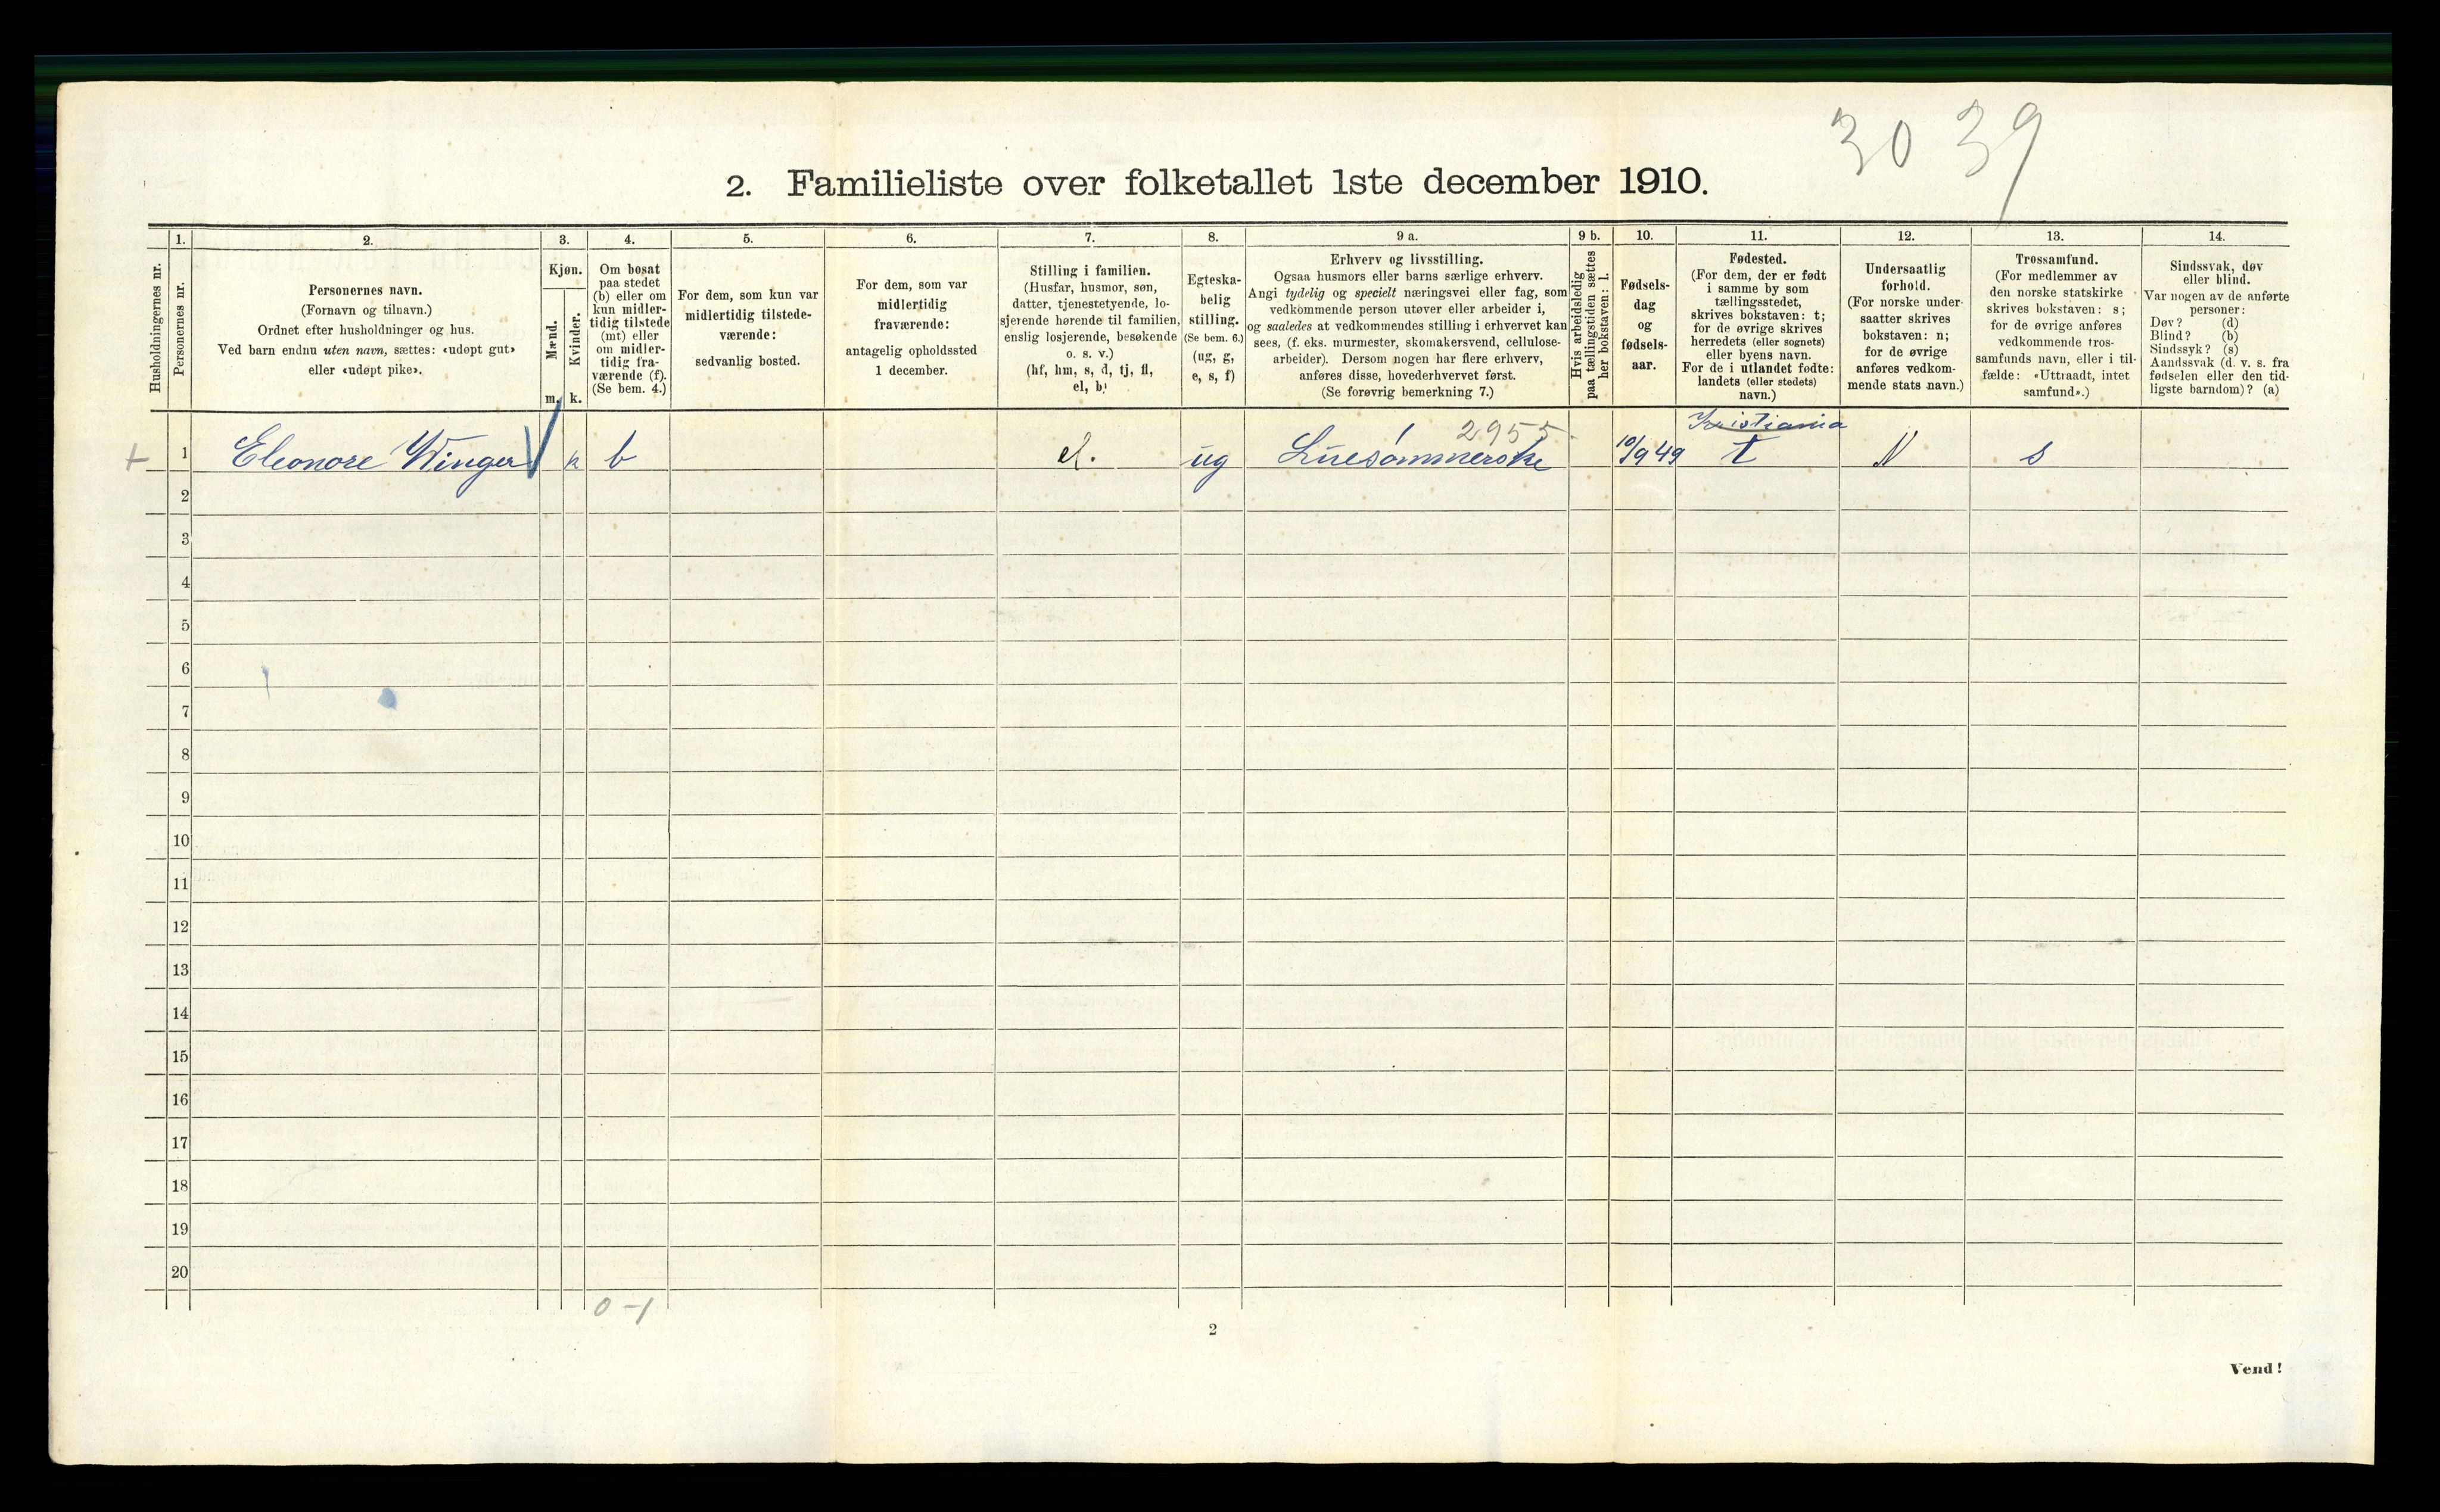 30 39
2. Familieliste over folketallet 1ste december 1910.
Husholdningernes nr.
1.
Personernes nr.
2.
Personernes navn.
(Fornavn og tilnavn.)
Ordnet efter husholdninger og hus.
Ved barn endnu uten navn, sættes: «udøpt gut»
eller «udøpt pike».
3.
Kjøn.
Mænd.
Kvinder.
m.
k.
4.
Om bosat
paa stedet
(b) eller om
kun midler-
tidig tilstede
(mt) eller
om midler-
tidig fra-
værende (f).
(Se bem. 4.)
5.
For dem, som kun var
midlertidig tilstede-
værende:
sedvanlig bosted.
6.
For dem, som var
midlertidig
fraværende:
antagelig opholdssted
1 december.
7.
Stilling i familien.
(Husfar, husmor, søn,
datter, tjenestetyende, lo-
sjerende hørende til familien,
enslig losjerende, besøkende
o. s. v.)
(hf, hm, s, d, tj, fl,
el, b)
8.
Egteska-
belig
stilling.
(Se bem. 6.)
(ug, g,
e, s, f)
9 a.
Erhverv og livsstilling.
Ogsaa husmors eller barns særlige erhverv.
Angi tydelig og specielt næringsvei eller fag, som
vedkommende person utøver eller arbeider i,
og saaledes at vedkommendes stilling i erhvervet kan
sees, (f. eks. murmester, skomakersvend, cellulose-
arbeider). Dersom nogen har flere erhverv,
anføres disse, hovederhvervet først.
(Se forøvrig bemerkning 7.)
9 b.
Hvis arbeidsledig
paa tællingstiden sættes
her bokstaven: l.
10.
Fødsels-
dag
og
fødsels-
aar.
11.
Fødested.
(For dem, der er født
i samme by som
tællingsstedet,
skrives bokstaven: t;
for de øvrige skrives
herredets (eller sognets)
eller byens navn.
For de i utlandet fødte:
landets (eller stedets)
navn.)
12.
Undersaatlig
forhold.
(For norske under-
saatter skrives
bokstaven: n;
for de øvrige
anføres vedkom-
mende stats navn.)
13.
Trossamfund.
(For medlemmer av
den norske statskirke
skrives bokstaven: s;
for de øvrige anføres
vedkommende tros-
samfunds navn, eller i til-
fælde: «Uttraadt, intet
samfund».)
14.
Sindssvak, døv
eller blind.
Var nogen av de anførte
personer:
Døv? (d)
Blind? (b)
Sindssyk? (s)
Aandssvak (d. v. s. fra
fødselen eller den tid-
ligste barndom)? (a)
2955 Kristiania
+ 1 Eleonore Winger k b el. ug Luesömmerske 10/9 49 t N s
2
3
4
5
6
7
8
9
10
11
12
13
14
15
16
17
18
19
20
0-1
2
Vend!